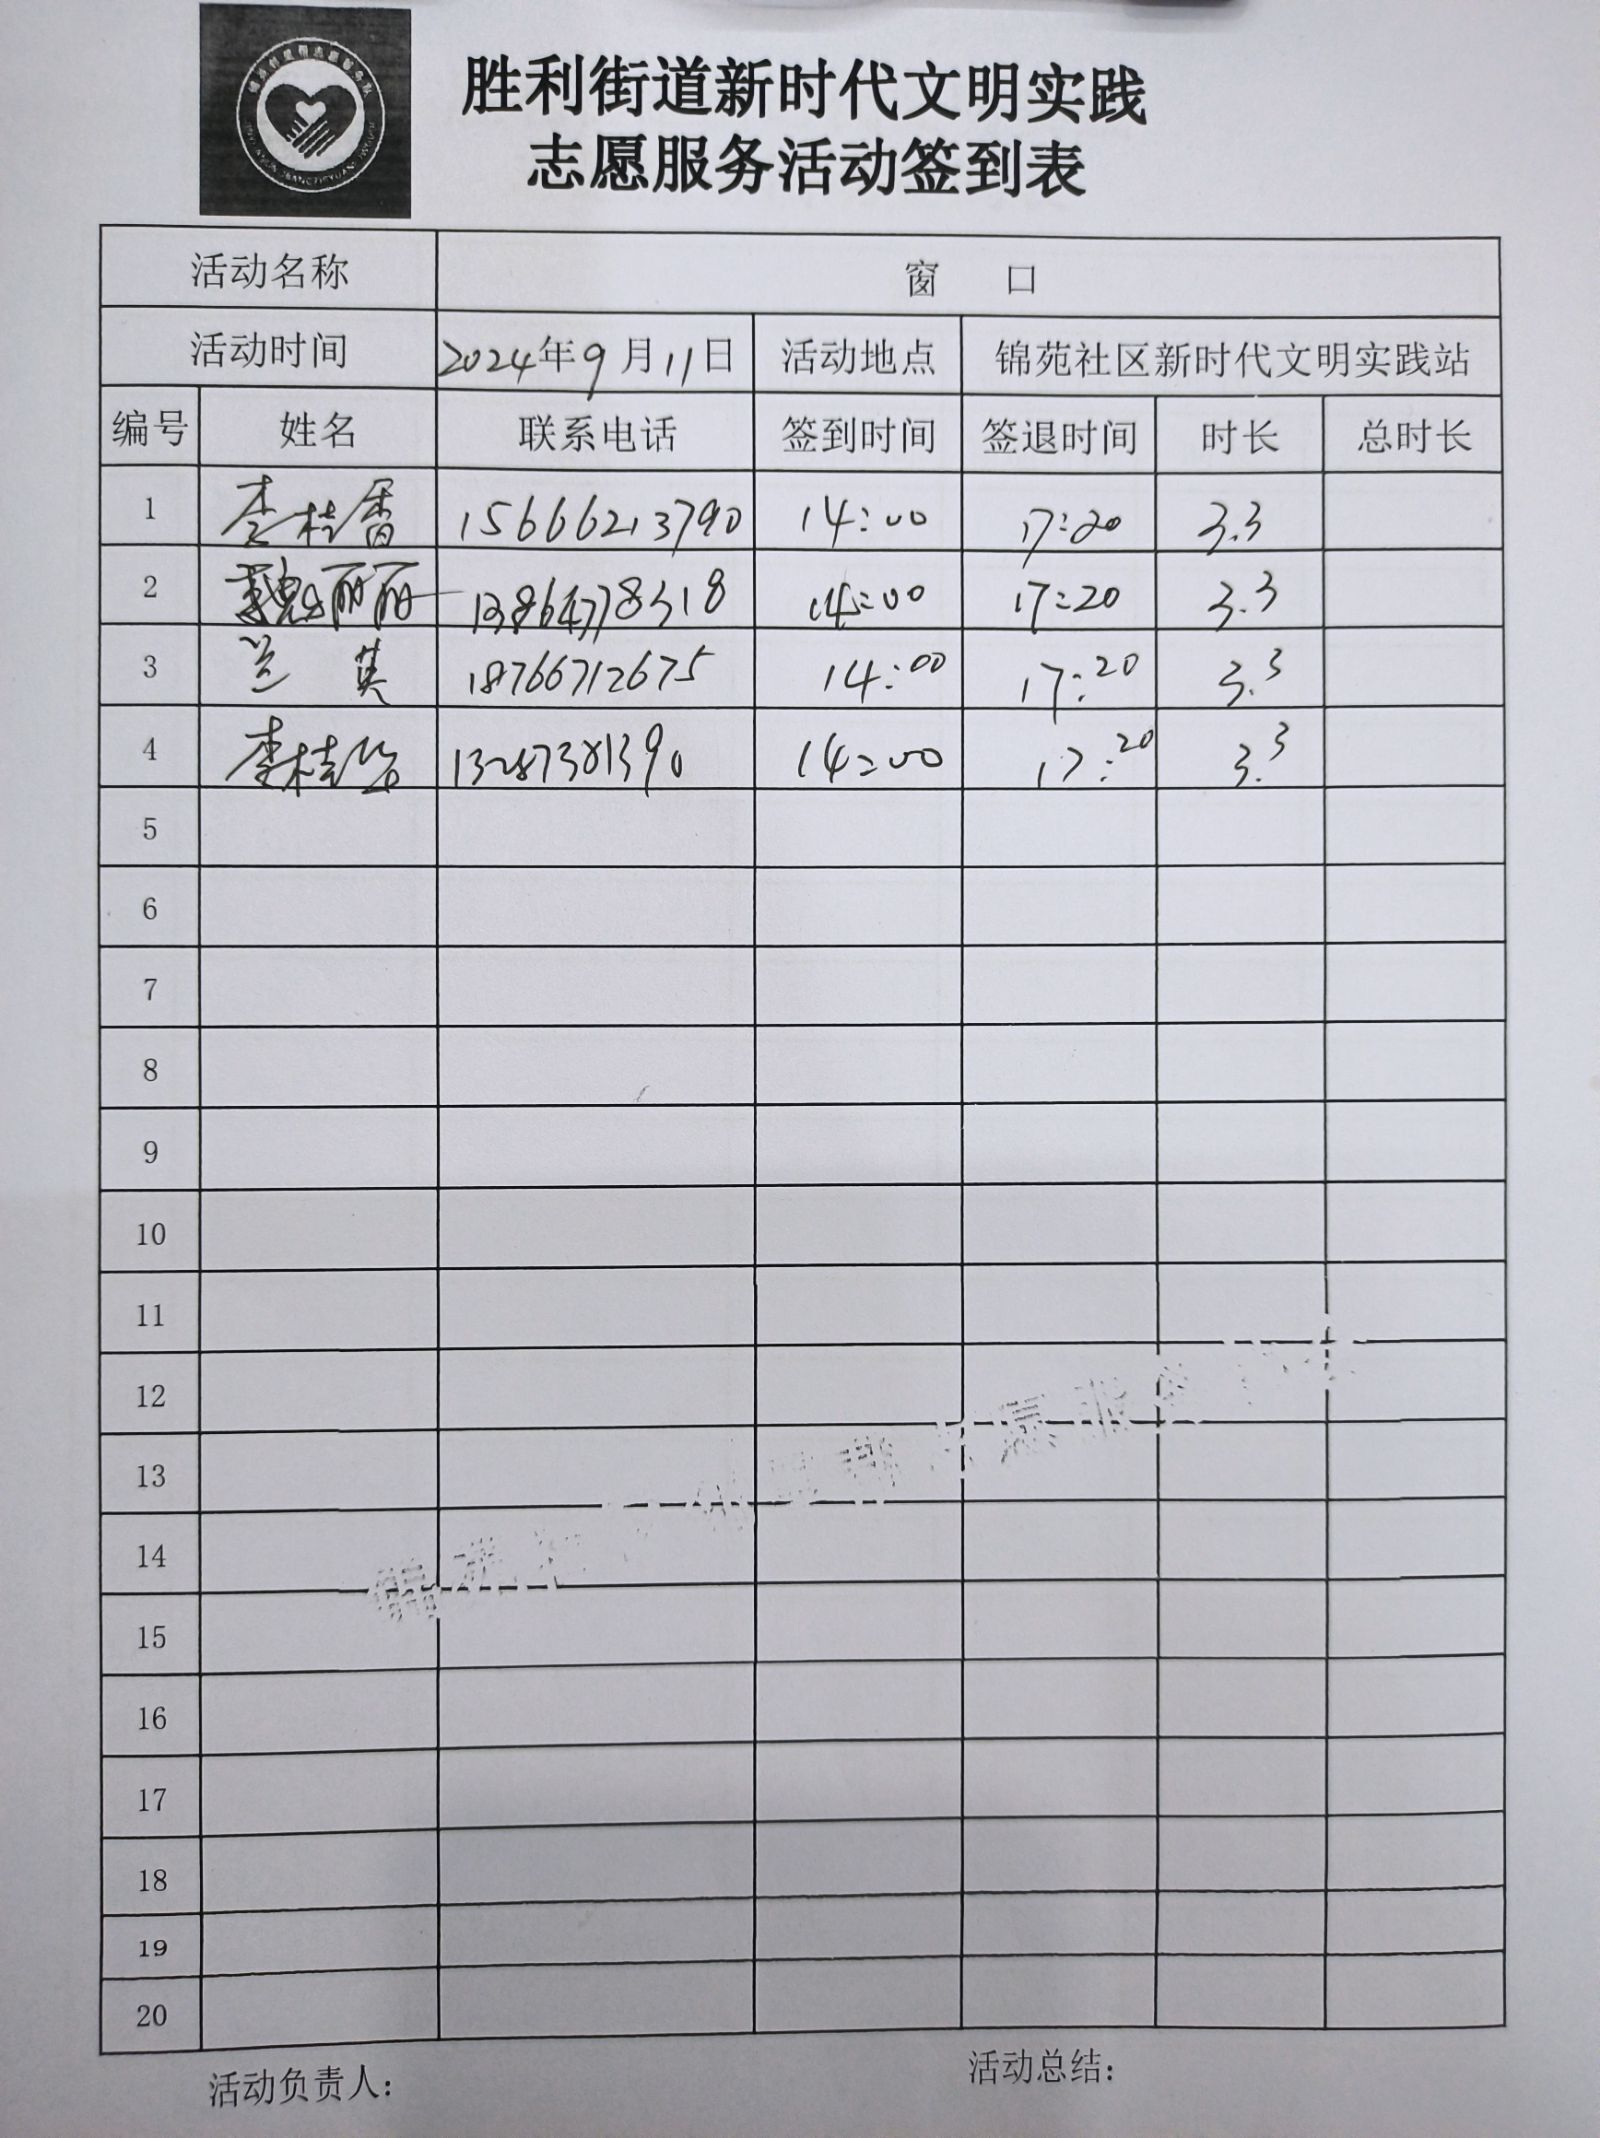 胜利街道新时代文明实践
志愿服务活动签到表
活动名称 窗 口
活动时间 2024年9月11日 活动地点 锦苑社区新时代文明实践站
编号 姓名 联系电话 签到时间 签退时间 时长 总时长
1 李桂香 15666213790 14:00 17:20 3.3
2 魏丽丽 13864778318 14:00 17:20 3.3
3 兰英 18766712675 14:00 17:20 3.3
4 李桂 13287381390 14:00 17:20 3.3
5
6
7
8
9
10
11
12
13
14
15
16
17
18
19
20
活动负责人： 活动总结：